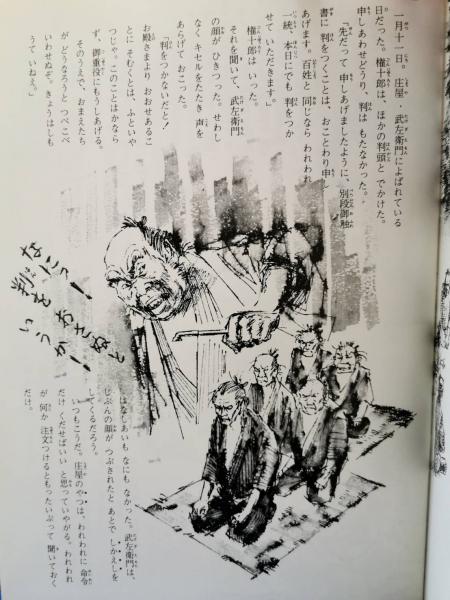 一月十一日。庄屋 武左衛門によばれている
日だった。権十郎は、ほかの判頭と でかけた。
申しあわせどうり、判は もたなかった。
「先だって 申しあげましたように、別段御触
書に 判をつくことは、おことわり申し
あげます。百姓と 同じなら われわれ
一統、本日にでも 判をつか
せて いただきます。」
権十郎は いった。
それを聞いて、武左衛門
の顔が ひきつった。せわし
なく キセルをたたき 声を
あらげて おこった。
「判を つかないだと!
お殿さまより おおせあるこ
とに そむくとは、ふといや
つじゃ。このことは かなら
ず、御重役に もうしあげる。
そのうえで、おまえたち
が どうなろうと つべこべ
いわせぬぞ。きょうは しも
うて いねえ。」
なにっ!
判を おさぬと
いうか!
はなしあいも なにも なかった。武左衛門は、
じぶんの顔が つぶされたと あとで しかえしを
してくるだろう。
いつもこうだ。庄屋のやつは、われわれに 命令
だけ くだせばいい と思っていやがる。われわれ
が 何か 注文つけると もったいぶって 聞いておく
だけ。